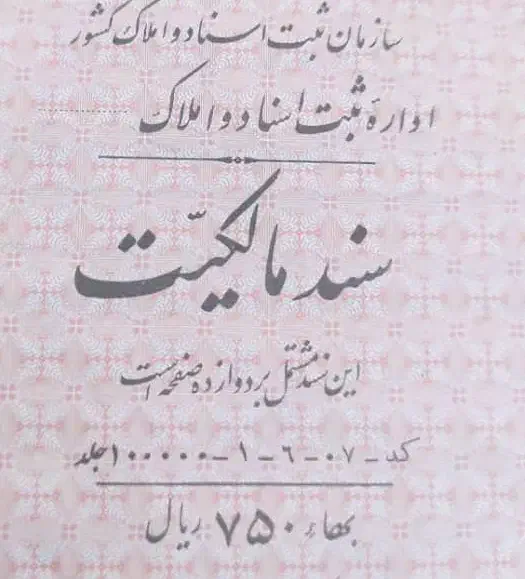 سازمان ثبت اسناد و املاک کشور
ادارهٔ ثبت اسناد و املاک ..............
سند مالکیّت
این سند مشتمل بر دوازده صفحه است
کد - ۰۷ - ۶ - ۱ - ۱۰۰۰۰۰ جلد
بهاء ۷۵۰ ریال